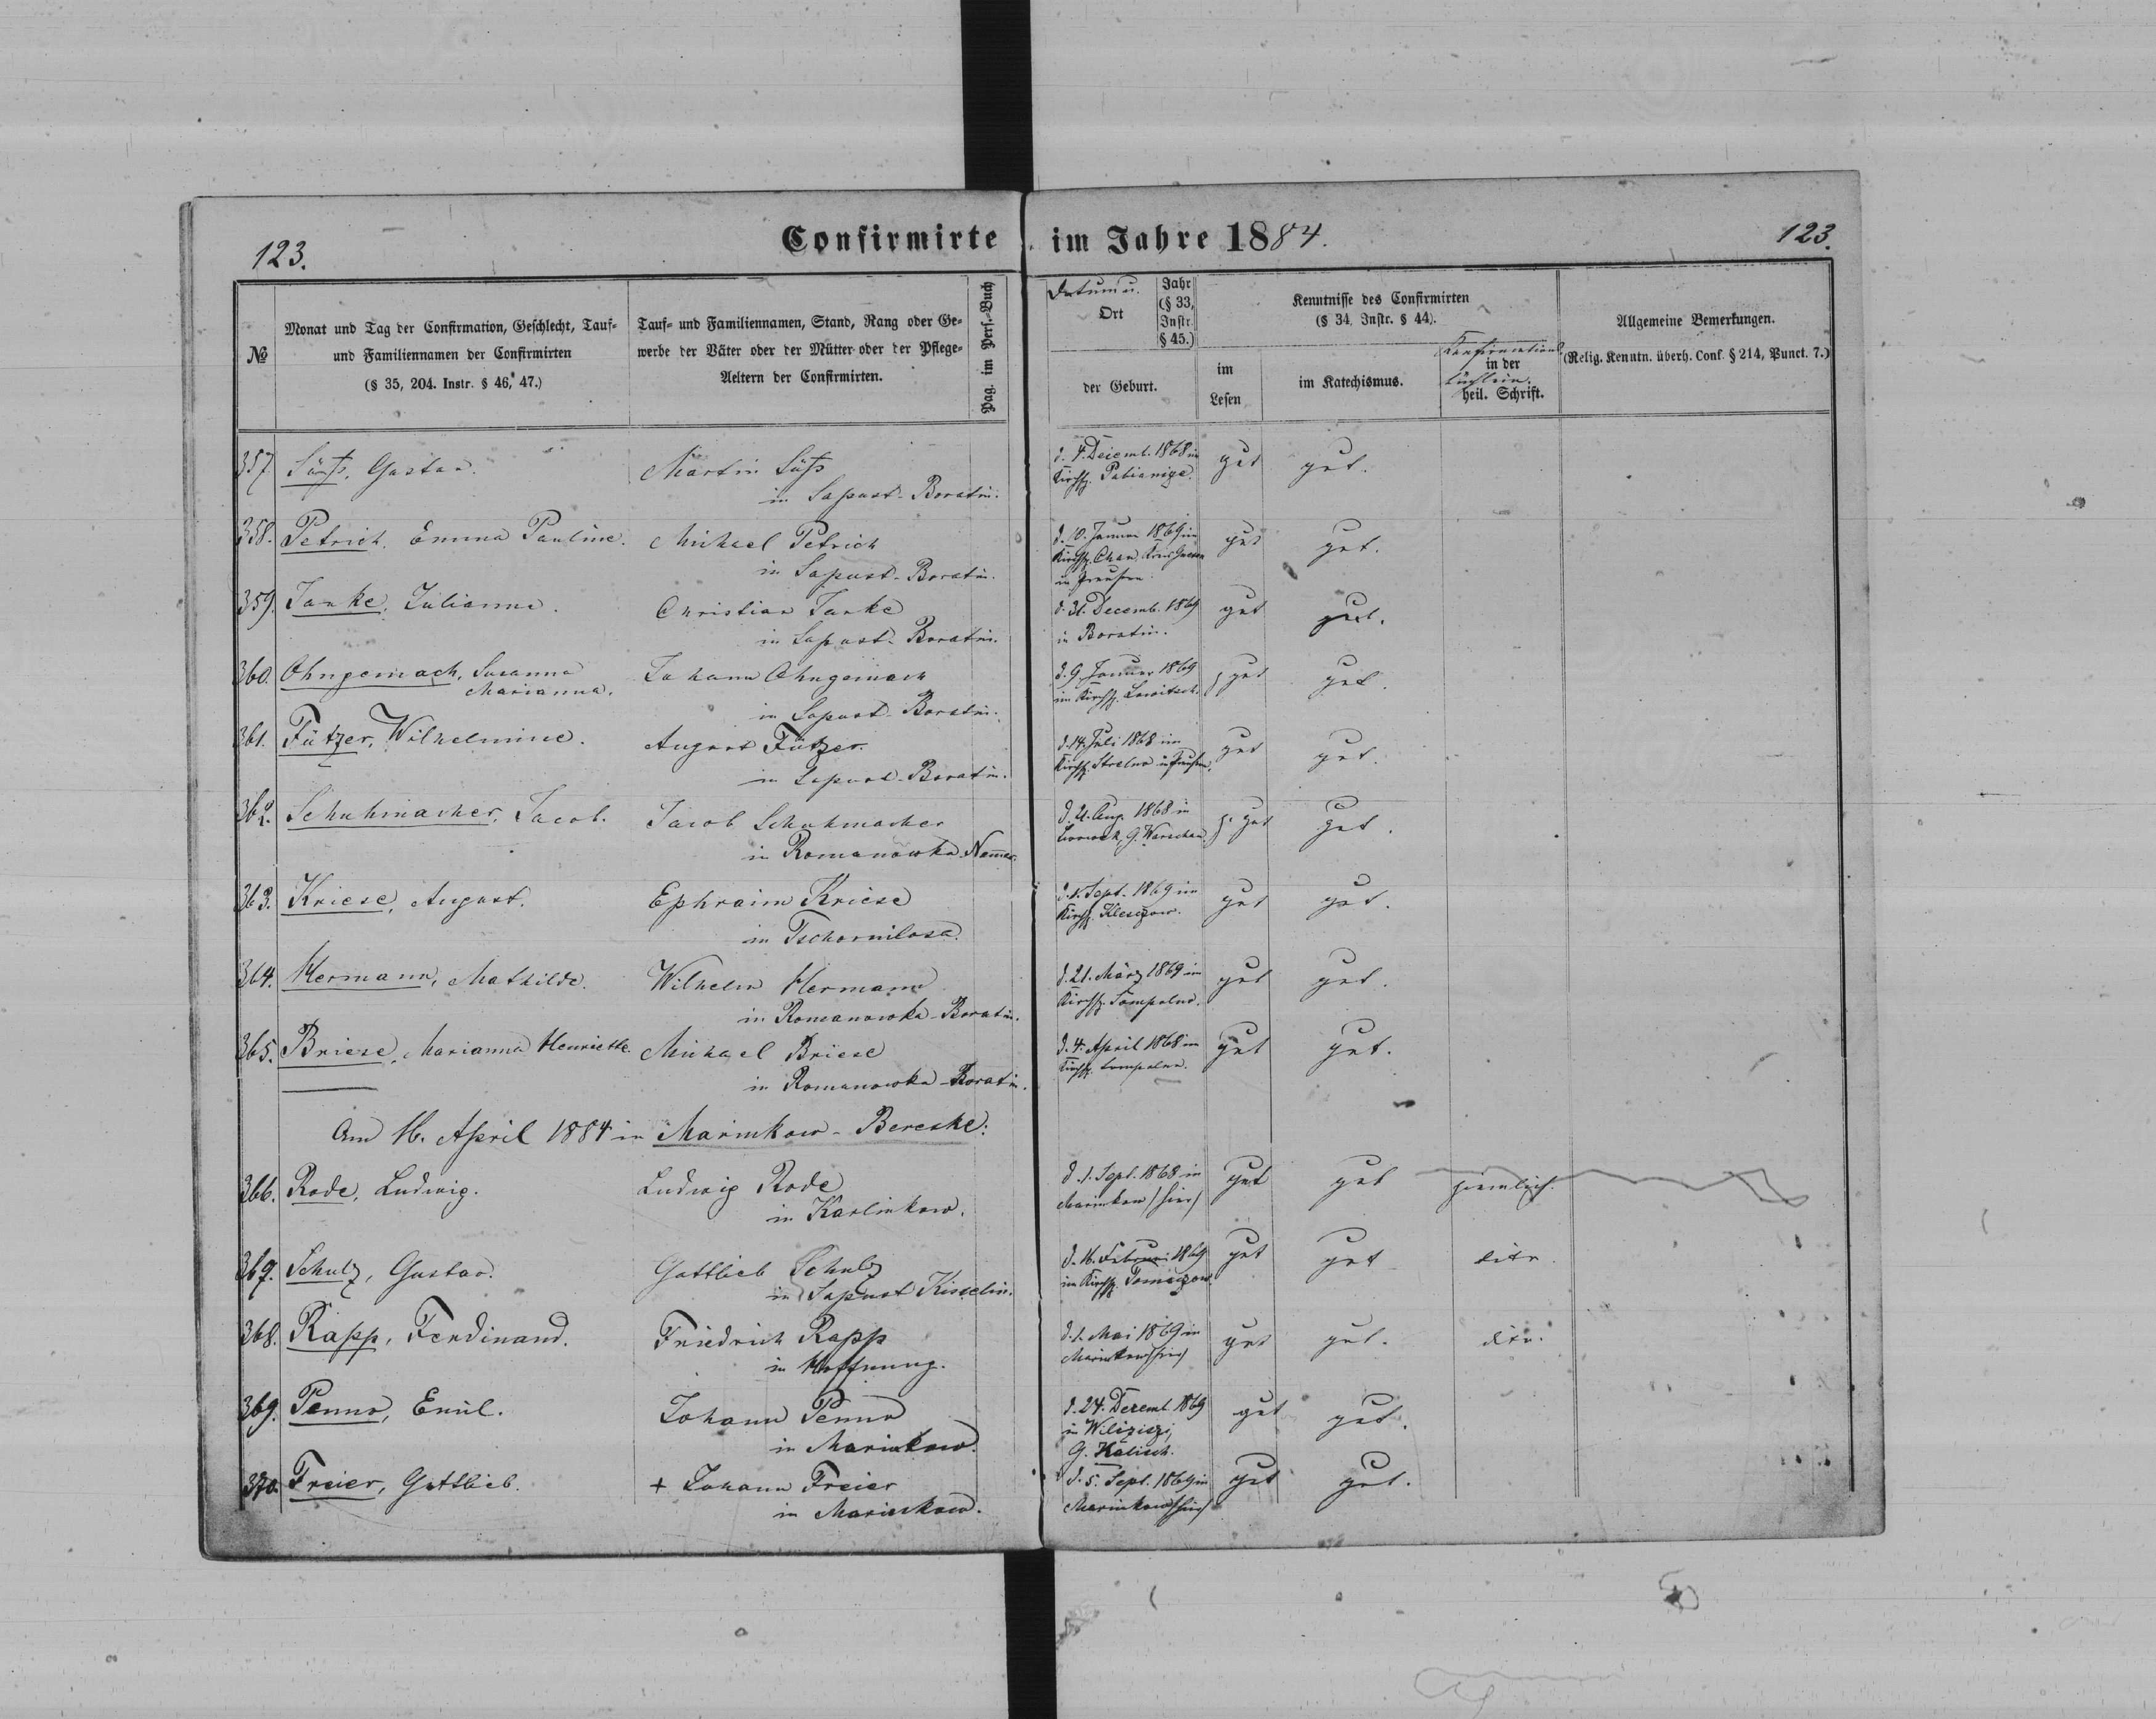 123.
Confirmirte im Jahre 1884.
123.
№
Monat und Tag der Confirmation, Geschlecht, Tauf-
und Familiennamen der Confirmirten
(§ 35, 204. Instr. § 46, 47.)
Tauf- und Familiennamen, Stand, Rang oder Ge-
werbe der Väter oder der Mütter oder der Pflege-
Aeltern der Confirmirten.
Pag. im Pers.-Buch
Datum u.
Ort
Jahr
(§ 33,
Instr.
§ 45.)
der Geburt.
Kenntnisse des Confirmirten
(§ 34. Instr. § 44).
im
Lesen
im Katechismus.
Confirmations
in der
büchlein.
heil. Schrift.
Allgemeine Bemerkungen.
(Relig. Kenntn. überh. Conf. § 214, Punct. 7.)
357. Gustav.
Martin
in Sapust-Boratin.
d. 4. Decemb. 1868 im
Kirchsp. Pabianize.
gut gut.
358. Petrich, Emma Pauline.
Michael Petrich
in Sapust-Boratin.
d. 10. Januar 1869 im
Kirchsp.
in Preußen.
gut gut.
359. Janke, Julianna.
Christian Janke
in Sapust-Boratin.
d. 31. Decemb. 1869
in Boratin.
gut gut.
360. Ohngemach, Susanna
Marianna.
Johann Ohngemach
in Sapust-Boratin.
d. 9. Januar 1869
im Kirchsp. Lowitsch.
z. gut gut.
361. Fützer, Wilhelmine.
August Fützer
in Sapust-Boratin.
d. 14. Juli 1868 im
Kirchsp. Strelno in Preußen.
gut gut.
362. Schuhmacher, Jacob.
Jacob Schuhmacher
in Romanowka
d. 21. Aug. 1868 in
G. Warschau.
z. gut gut.
363. Kriese, August.
Ephraim Kriese
in Tschornilosa.
d. 1. Sept. 1869 im
Kirchsp. Kleszczow.
gut gut.
364. Hermann, Mathilde.
Wilhelm Hermann
in Romanowka-Boratin.
d. 21. März 1869 im
Kirchsp. Sompolno.
gut gut.
365. Briese, Marianna Henriette.
Michael Briese
in Romanowka-Boratin.
d. 4. April 1868 im
Kirchsp. Sompolno.
gut gut.
Am 16. April 1884 in Marinkow-Bereske:
366. Rode, Ludwig.
Ludwig Rode
in Karlinkow.
d. 1. Sept. 1868 in
Marinkow (hier)
gut gut ziemlich.
367. Schulz, Gustav.
Gottlieb Schulz
in Sapust Kisselin.
d. 16. Februar 1869
im Kirchsp. Tomaszow.
gut gut dito
368. Rapp, Ferdinand.
Friedrich Rapp
in Hoffnung.
d. 1. Mai 1869 in
Marinkow (hier)
gut gut. dito.
369. Penno, Emil.
Johann Penno
in Marinkow.
d. 24. Decemb. 1869
in
G. Kalisch.
gut gut.
370. Freier, Gottlieb.
+ Johann Freier
in Marinkow.
d. 5. Sept. 1869 in
Marinkow (hier)
gut gut.